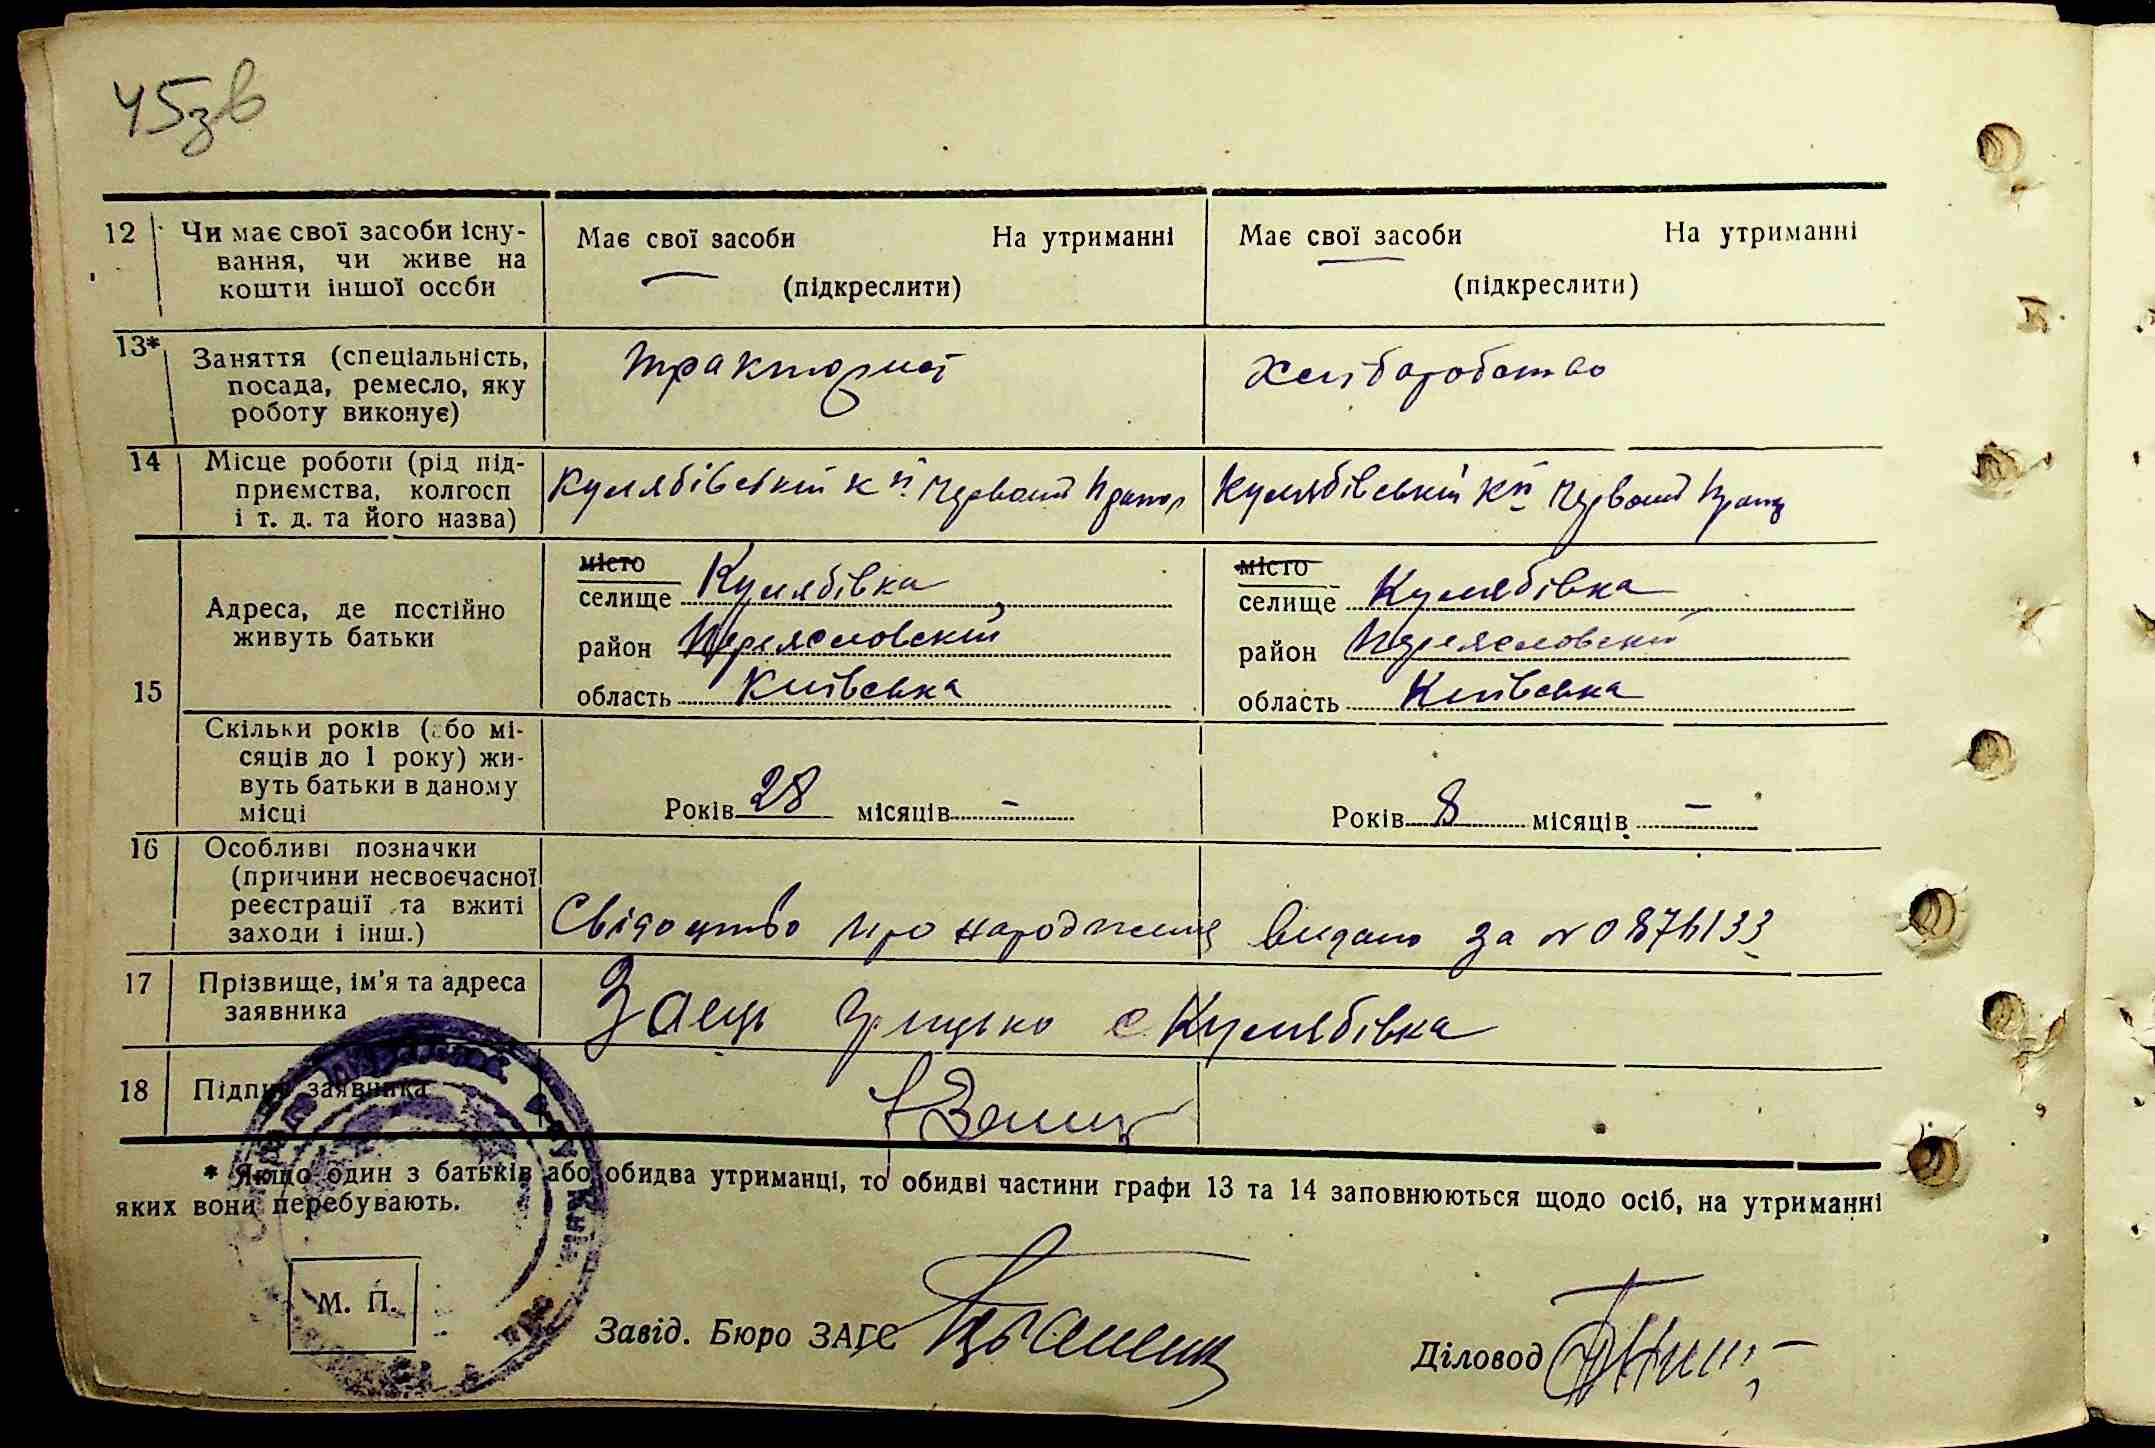 45зв
12 Чи має свої засоби існу-
вання, чи живе на
кошти іншої особи
Має свої засоби На утриманні
(підкреслити)
Має свої засоби На утриманні
(підкреслити)
13* Заняття (спеціальність,
посада, ремесло, яку
роботу виконує)
тракторист
хліборобство
14 Місце роботи (рід під-
приємства, колгосп
і т. д. та його назва)
Кулябівський к-п Червоний Прапор
Кулябівський к-п Червоний Прапор
15 Адреса, де постійно
живуть батьки
місто
селище Кулябівка
район Переясловский
область Київська
місто
селище Кулябівка
район Переясловский
область Київська
Скільки років (або мі-
сяців до 1 року) жи-
вуть батьки в даному
місці
Років 28 місяців –
Років 8 місяців –
16 Особливі позначки
(причини несвоєчасної
реєстрації та вжиті
заходи і інш.)
Свідоцтво про народження видано за №
17 Прізвище, ім'я та адреса
заявника
Заєць Грицько с Кулябівка
18 Підпис заявника
* Якщо один з батьків або обидва утриманці, то обидві частини графи 13 та 14 заповнюються щодо осіб, на утриманні
яких вони перебувають.
М. П.
Завід. Бюро ЗАГС
Діловод